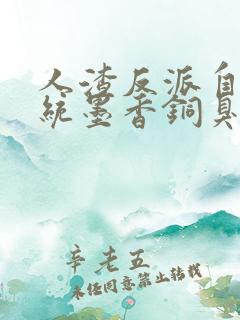 人渣反派自
統墨香銅臭
辛老五
未经同意禁止转载